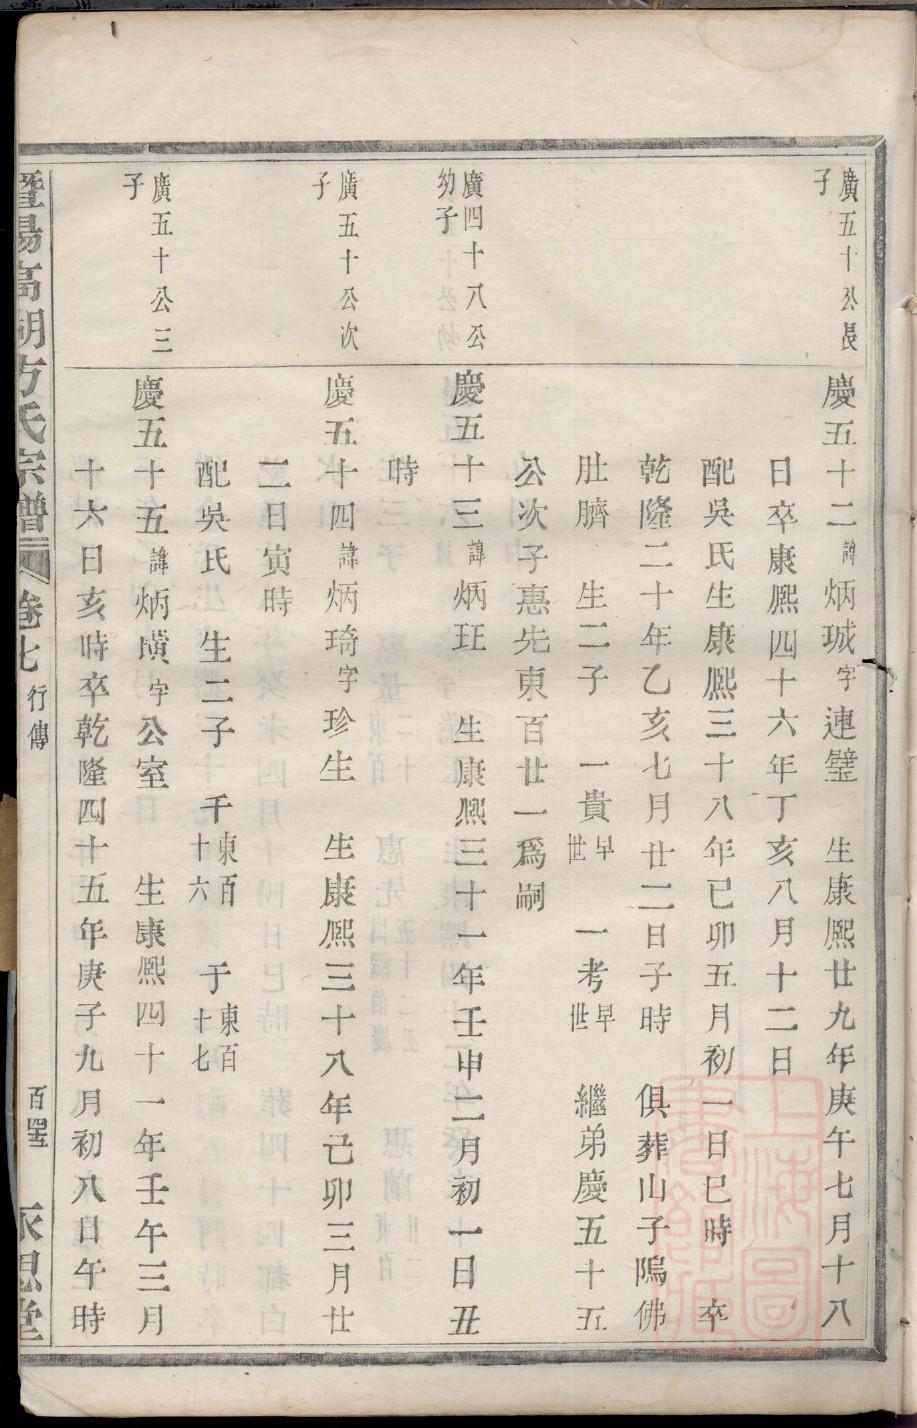 廣五十公長
子
慶五十二諱炳珹字連璧 生康熙廿九年庚午七月十八
日卒康熙四十六年丁亥八月十二日
配吳氏生康熙三十八年己卯五月初一日巳時 卒
乾隆二十年乙亥七月廿二日子時 俱葬山子隝佛
肚臍 生二子 一貴早世 一考早世 繼弟慶五十五
公次子惠先東百廿一爲嗣
廣四十八公
幼子
慶五十三諱炳玨 生康熙三十一年壬申二月初一日丑
時
廣五十公次
子
慶五十四諱炳琦字珍生 生康熙三十八年己卯三月廿
二日寅時
配吳氏 生二子 千東百十六 于東百十七
廣五十公三
子
慶五十五諱炳璜字公室 生康熙四十一年壬午三月
十六日亥時卒乾隆四十五年庚子九月初八日午時
暨陽高湖方氏宗譜 卷七 行傳 永思堂